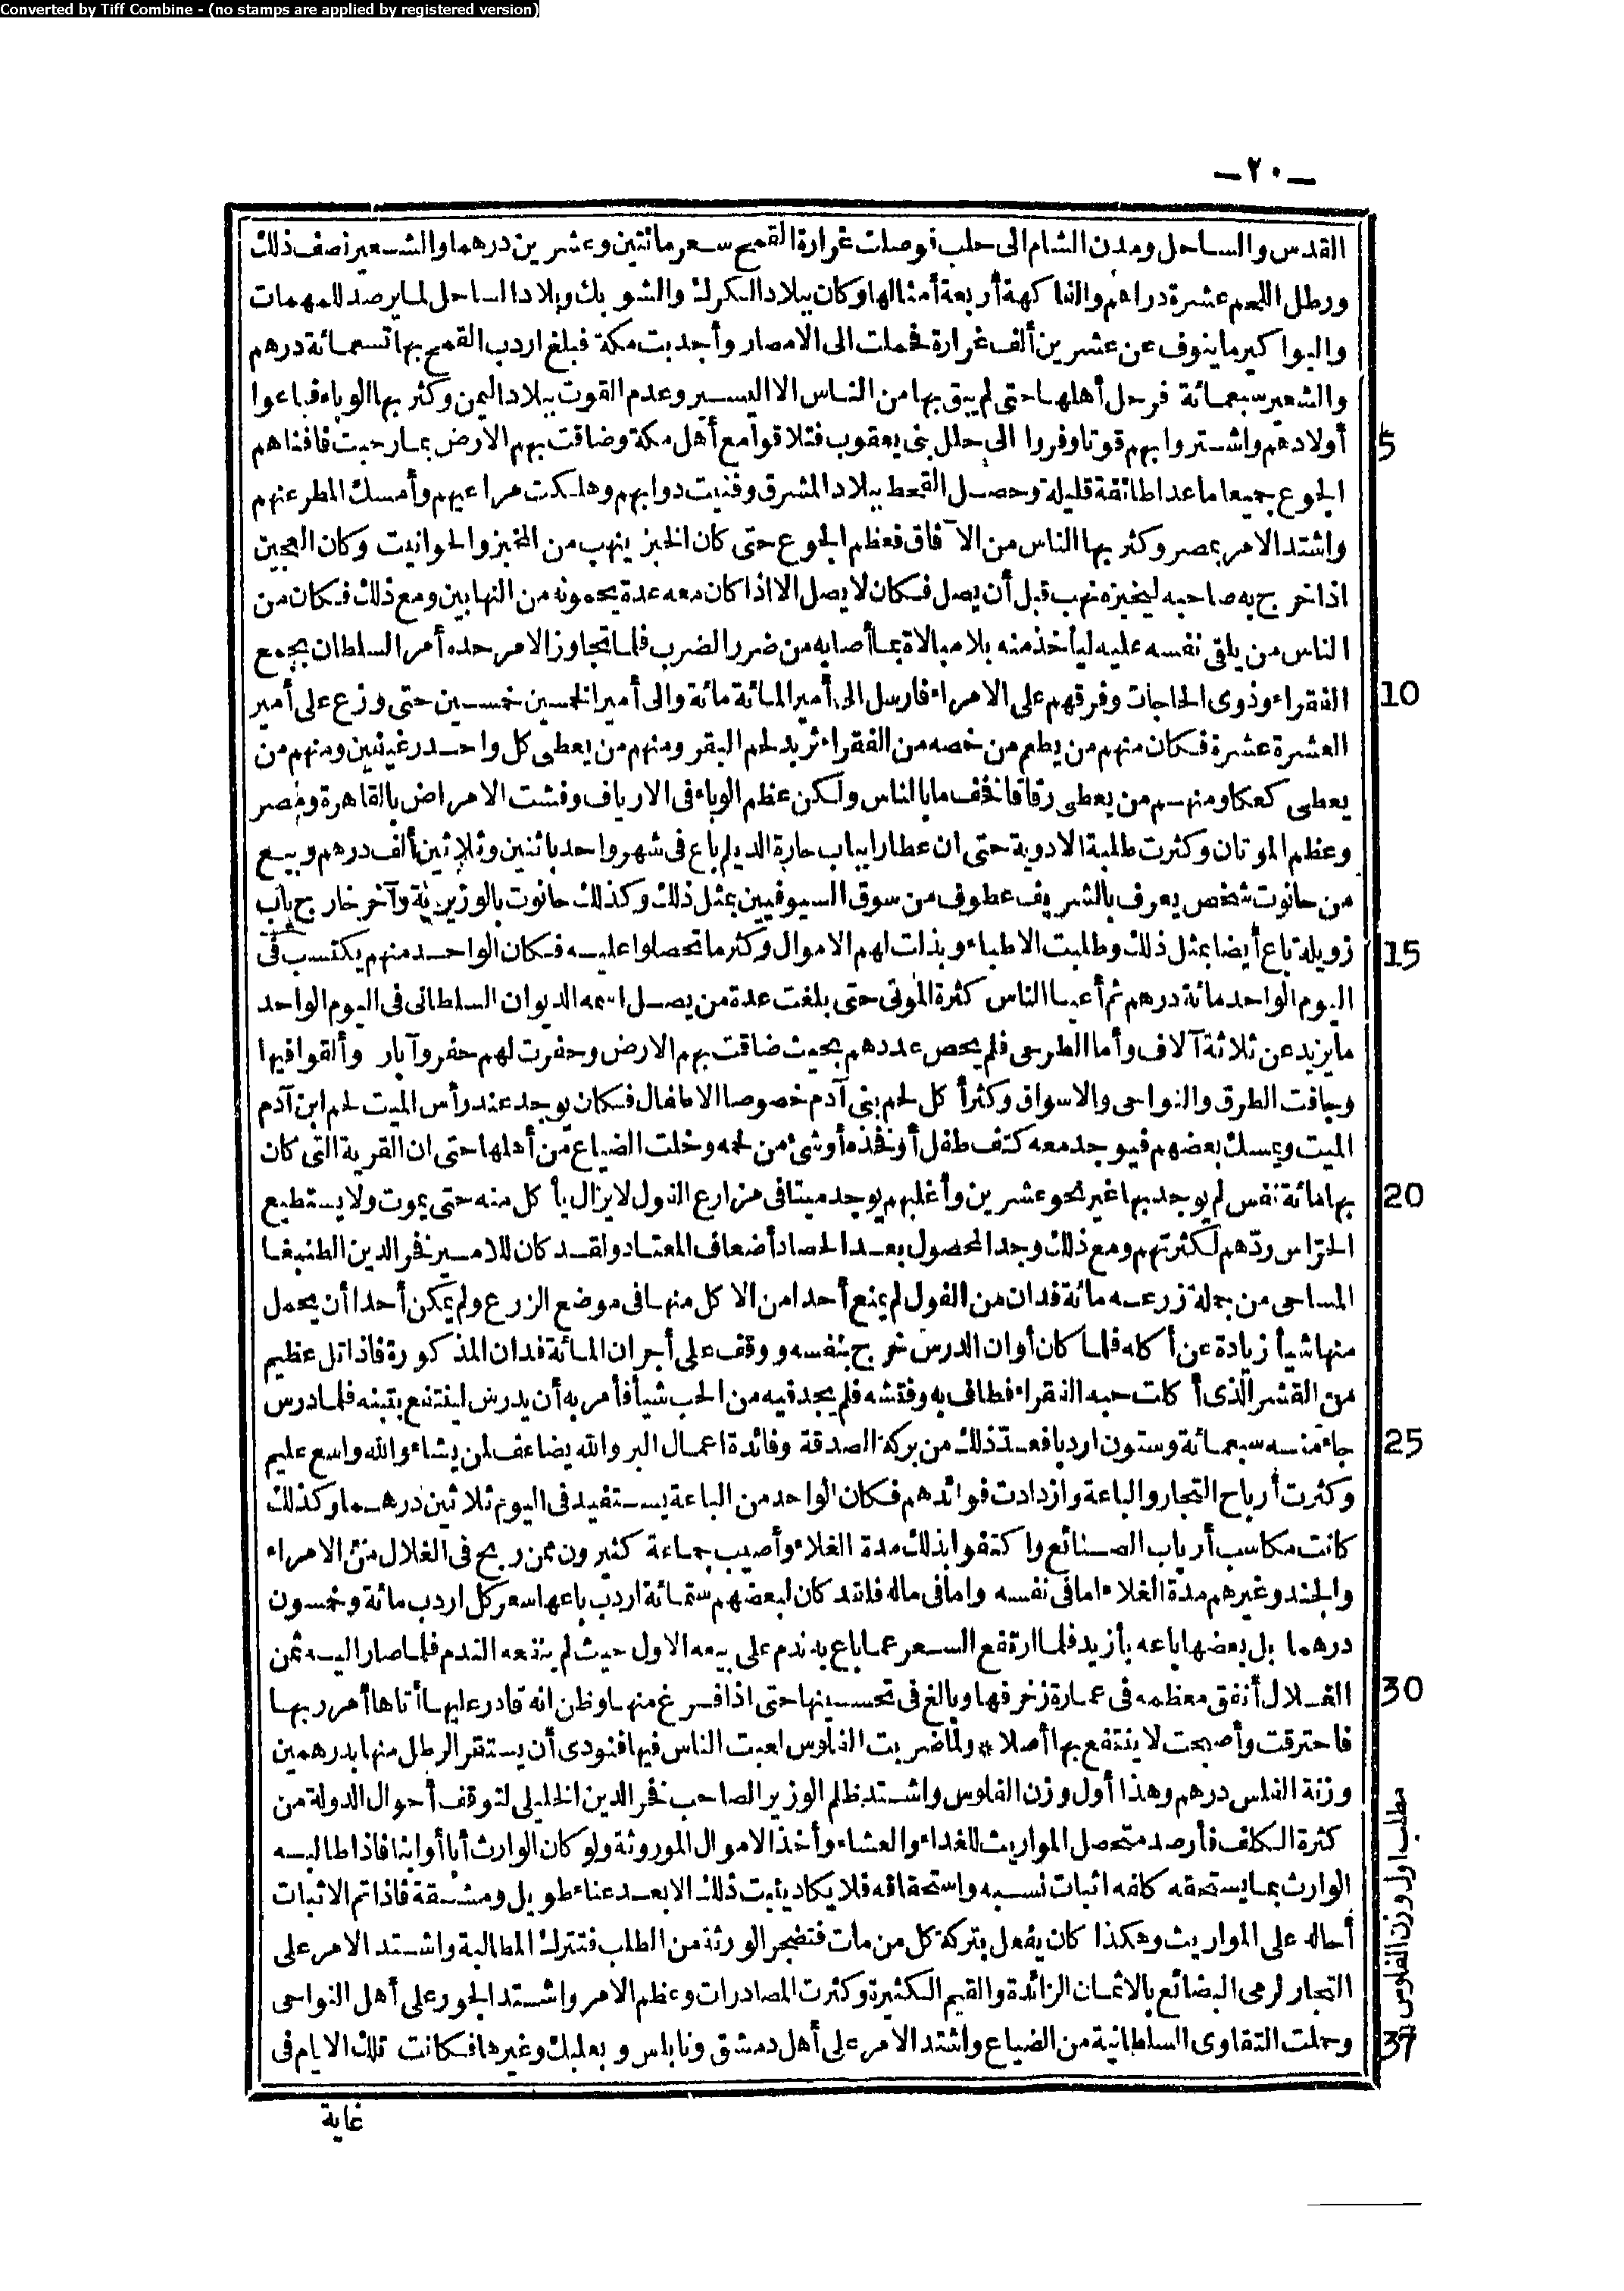 Converted by Tiff Combine - (no stamps are applied by registered version)
ـ ٢٠ ـ
القدس والساحل ومدن الشام الى حلب فوصلت غرارة القمح سعر مائتين وعشرين درهما والشعير نصف ذلك
ورطل اللحم عشرة دراهم والفاكهة أربعة أمثالها وكان ببلاد الكرك والشوبك وبلاد الساحل لما يرصد للمهمات
والبواكير ما ينوف عن عشرين ألف غرارة فحملت الى الامصار وأجدبت مكة فبلغ اردب القمح بها تسعمائة درهم
والشعير سبعمائة فرحل أهلها حتى لم يبق بها من الناس الا اليسير وعدم القوت ببلاد اليمن وكثر بها الوباء فباعوا
أولادهم واشتروا بهم قوتا وفروا الى حلل بنى يعقوب فتلاقوا مع أهل مكة وضاقت بهم الارض بما رحبت فافناهم
5
الجوع جميعا ما عدا طائفة قليلة وحصل القحط ببلاد المشرق وفنيت دوابهم وهلكت مراعيهم وأمسك المطر عنهم
واشتد الامر بمصر وكثر بها الناس من الآفاق فعظم الجوع حتى كان الخبز ينهب من المخبز والحوانيت وكان العجين
اذا خرج به صاحبه ليخبزه نهب قبل أن يصل فكان لا يصل الا اذا كان معه عدة يحمونه من النهابين ومع ذلك فكان من
الناس من يلقى نفسه عليه ليأخذ منه بلا مبالاة بما أصابه من ضرر الضرب فلما تجاوز الامر حده أمر السلطان بجمع
الفقراء وذوى الحاجات وفرقهم على الامراء فارسل الى أمير المائة مائة والى أمير الخمسين خمسين حتى وزع على أمير
10
العشرة عشرة فكان منهم من يطعم من خصه من الفقراء ثريد لحم البقر ومنهم من يعطى كل واحد رغيفين ومنهم من
يعطى كعكا ومنهم من يعطى رقاقا فخف ما بالناس ولكن عظم الوباء فى الارياف وفشت الامراض بالقاهرة ومصر
وعظم الموتان وكثرت طلبة الادوية حتى ان عطارا بباب حارة الديلم باع فى شهر واحد باثنين وثلاثين ألف درهم وبيع
من حانوت شخص يعرف بالشريف عطوف من سوق السيوفيين بمثل ذلك وكذلك حانوت بالوزيرية وآخر خارج باب
زويلة باع أيضا بمثل ذلك وطلبت الاطباء وبذلت لهم الاموال وكثر ما تحصلوا عليه فكان الواحد منهم يكتسب فى
15
اليوم الواحد مائة درهم ثم أعيا الناس كثرة الموتى حتى بلغت عدة من يصل اسمه الديوان السلطانى فى اليوم الواحد
ما يزيد عن ثلاثة آلاف وأما الطرحى فلم يحص عددهم بحيث ضاقت بهم الارض وحفرت لهم حفر وآبار وألقوا فيها
وجافت الطرق والنواحى والاسواق وكثر أكل لحم بنى آدم خصوصا الاطفال فكان يوجد عند رأس الميت لحم ابن آدم
الميت ويمسك بعضهم فيوجد معه كتف طفل أو فخذه أو شئ من لحمه وخلت الضياع من أهلها حتى ان القرية التى كان
بها مائة نفس لم يوجد بها غير نحو عشرين وأغلبهم يوجد ميتا فى مزارع الفول لا يزال يأكل منه حتى يموت ولا يستطيع
20
الحراس ردّهم لكثرتهم ومع ذلك وجد المحصول بعد الحصاد أضعاف المعتاد ولقد كان للامير فخر الدين الطنبغا
المساحى من جملة زرعه مائة فدان من الفول لم يمنع أحدا من الاكل منها فى موضع الزرع ولم يمكن أحدا أن يحمل
منها شيأ زيادة عن أكله فلما كان أوان الدرس خرج بنفسه ووقف على أجران المائة فدان المذكورة فاذا تل عظيم
من القشر الذى أكلت حبه الفقراء فطاف به وفتشه فلم يجد فيه من الحب شيأ فأمر به أن يدرس لينتفع بتبنه فلما درس
جاء منه سبعمائة وستون اردبا فعدّ ذلك من بركة الصدقة وفائدة اعمال البر والله يضاعف لمن يشاء والله واسع عليم
25
وكثرت أرباح التجار والباعة وازدادت فوائدهم فكان الواحد من الباعة يستفيد فى اليوم ثلاثين درهما وكذلك
كانت مكاسب أرباب الصنائع واكتفوا بذلك مدة الغلاء وأصيب جماعة كثيرون ممن ربح فى الغلال من الامراء
والجند وغيرهم مدة الغلاء اما فى نفسه واما فى ماله فلقد كان لبعضهم ستمائة اردب باعها سعر كل اردب مائة وخمسون
درهما بل بعضها باعه بأزيد فلما ارتفع السعر عما باع به ندم على بيعه الاول حيث لم ينفعه الندم فلما صار اليه ثمن
الغلال أنفق معظمه فى عمارة زخرفها وبالغ فى تحسينها حتى اذا فرغ منها وظن انه قادر عليها أتاها أمر ربها
30
فاحترقت وأصبحت لا ينتفع بها أصلا * ولما ضربت الفلوس لعبت الناس فيها فنودى أن يستقر الرطل منها بدرهمين
وزنة الفلس درهم وهذا أول وزن الفلوس واشتد ظلم الوزير الصاحب فخر الدين الخليلى لتوقف أحوال الدولة من
كثرة الكلف فأرصد متحصل المواريث للغداء والعشاء وأخذ الاموال الموروثة ولو كان الوارث أبا أو ابنا فاذا طالبه
الوارث بما يستحقه كلفه اثبات نسبه واستحقاقه فلا يكاد يثبت ذلك الا بعد عناء طويل ومشقة فاذا تم الاثبات
أحاله على المواريث وهكذا كان يفعل بتركة كل من مات فتضجر الورثة من الطلب فتترك المطالبة واشتد الامر على
التجار لرمى البضائع بالاثمان الزائدة والقيم الكثيرة وكثرت المصادرات وعظم الامر واشتد الجور على أهل النواحى
وحملت التقاوى السلطانية من الضياع واشتد الامر على أهل دمشق ونابلس وبعلبك وغيرها فكانت تلك الايام فى
37
مطلب اول وزن الفلوس
غاية